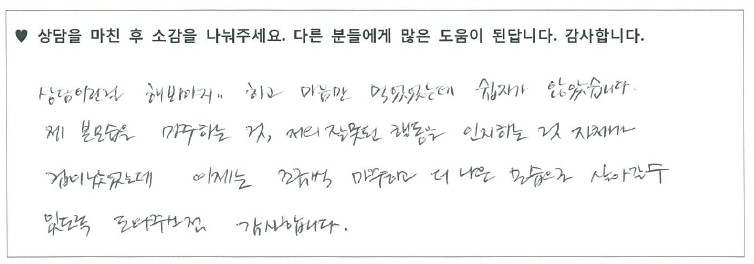 ♥ 상담을 마친 후 소감을 나눠주세요. 다른 분들에게 많은 도움이 된답니다. 감사합니다.
상담이란걸 해봐야지.. 하고 마음만 먹었었는데 쉽지가 않았습니다.
제 본모습을 마주하는 것, 저의 잘못된 행동을 인지하는 것 자체가
겁이났었는데 이제는 조금씩 마주하고 더 나은 모습으로 살아갈수
있도록 도와주셔서 감사합니다.